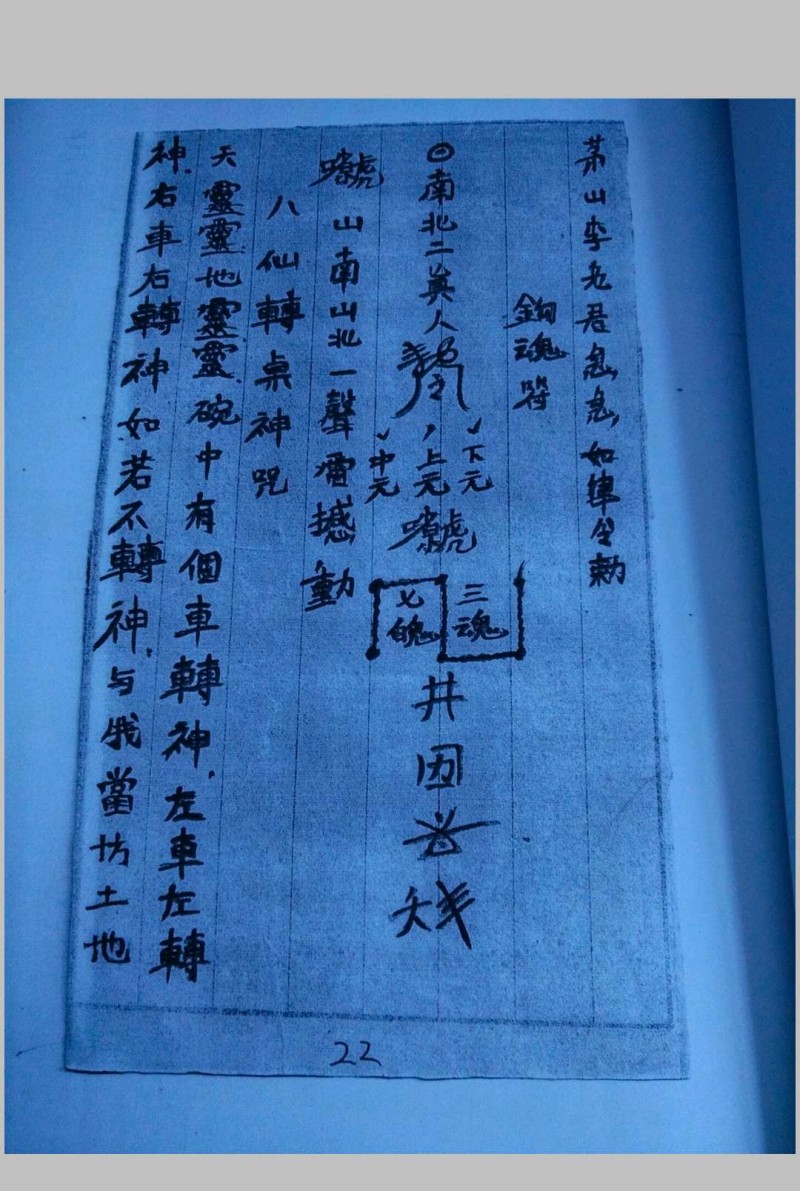 茅山李老君急急如律令勅
鈎魂符
南北二真人
下元
上元
中元
三魂
七魄
井
山南山北一聲雷撼動
八仙轉桌神咒
天靈靈地靈靈碗中有個車轉神左車左轉
神右車右轉神如若不轉神与我當坊土地
22